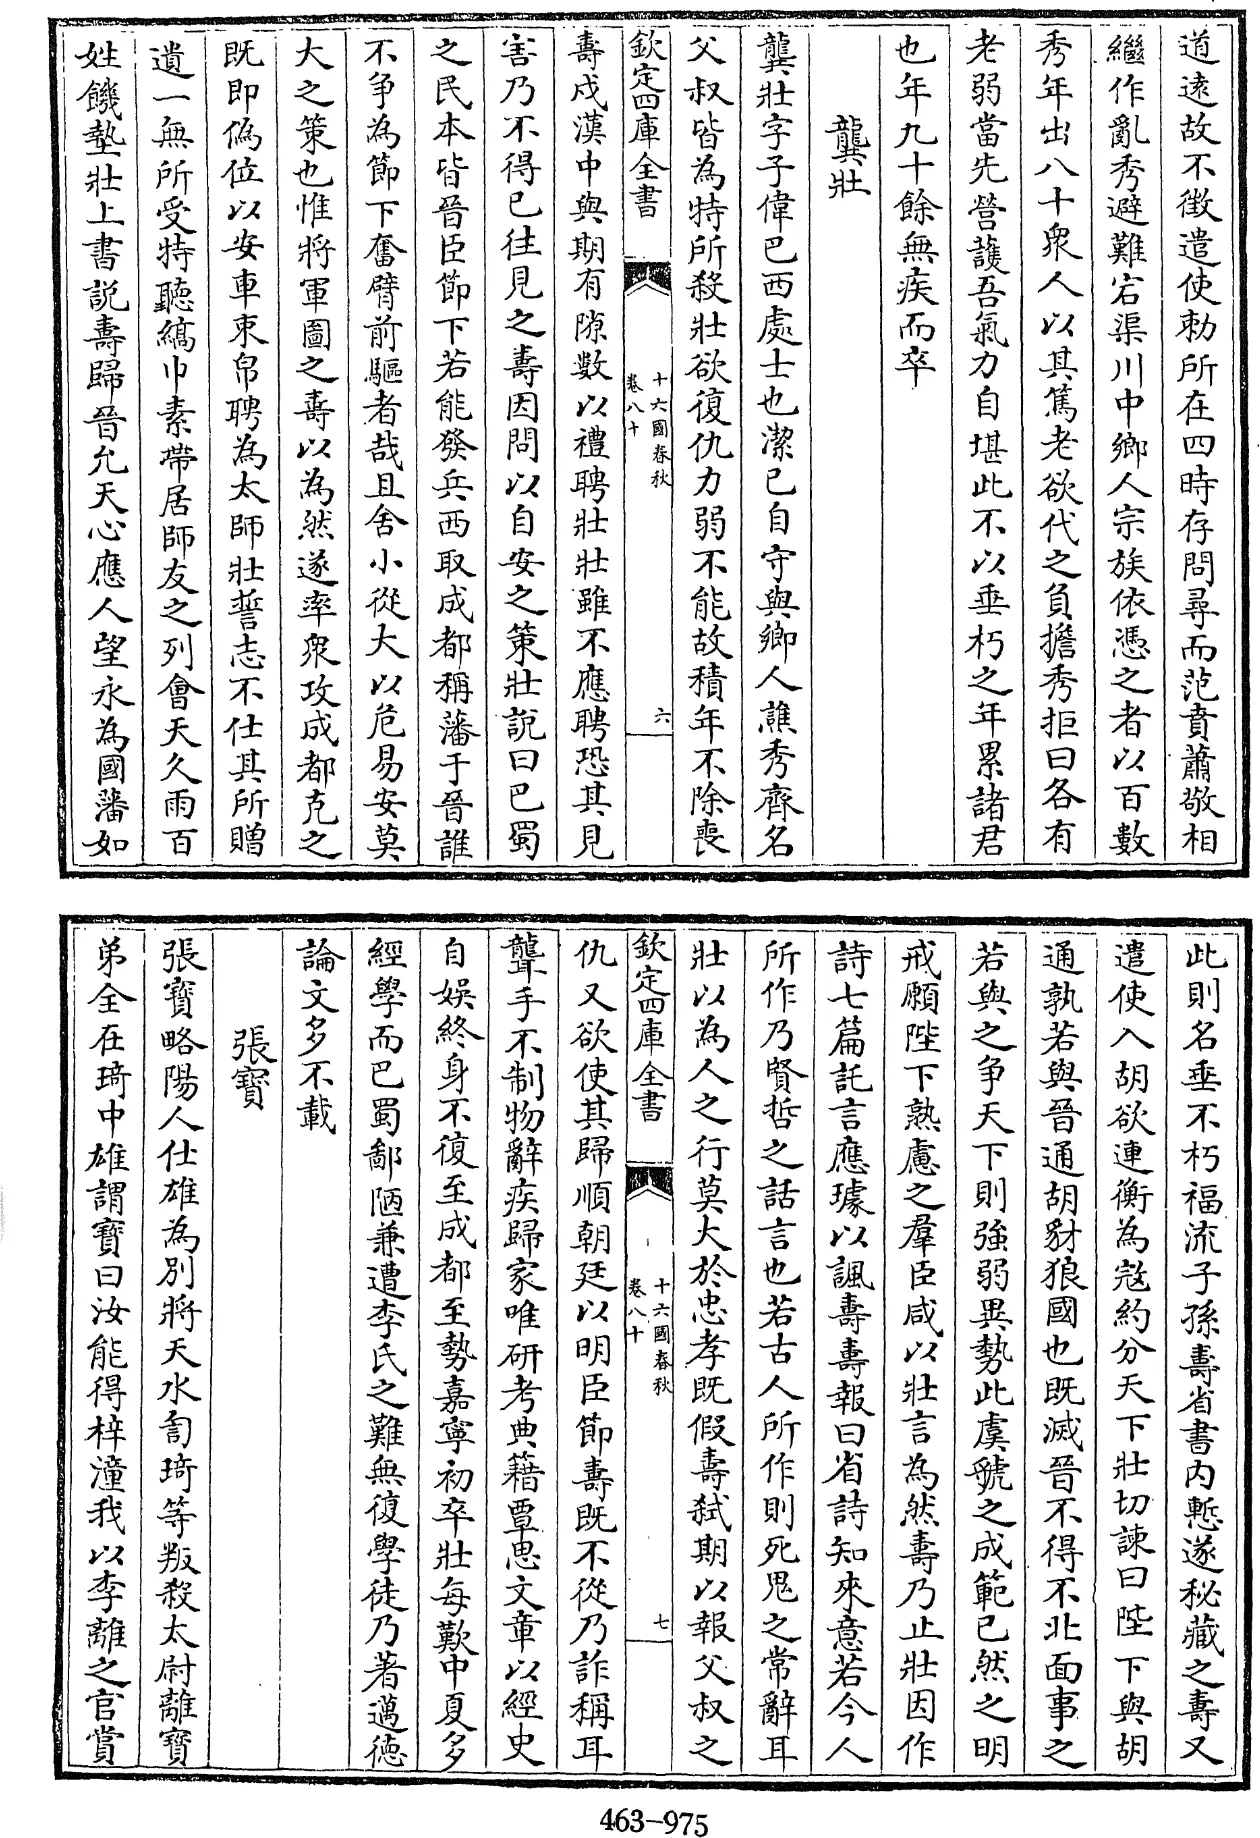 道逺故不徴遣使勅所在四時存問尋而范賁蕭敬相
繼作亂秀避難宕渠川中鄉人宗族依憑之者以百數
秀年出八十衆人以其篤老欲代之負擔秀拒曰各有
老弱當先營護吾氣力自堪此不以垂朽之年累諸君
也年九十餘無疾而卒
龔壯
龔壯字子偉巴西處士也潔己自守與鄉人譙秀齊名
父叔皆為特所殺壯欲復仇力弱不能故積年不除喪
欽定四庫全書
十六國春秋
卷八十
六
壽戍漢中與期有隙數以禮聘壯壯雖不應聘恐其見
害乃不得已往見之壽因問以自安之策壯說曰巴蜀
之民本皆晉臣節下若能發兵西取成都稱藩于晉誰
不爭為節下奮臂前驅者哉且舍小從大以危易安莫
大之策也惟將軍圖之壽以為然遂率衆攻成都克之
既即偽位以安車束帛聘為太師壯誓志不仕其所贈
遺一無所受特聽縞巾素帶居師友之列會天久雨百
姓饑墊壯上書說壽歸晉允天心應人望永為國藩如
此則名垂不朽福流子孫壽省書内慙遂秘藏之壽又
遣使入胡欲連衡為寇約分天下壯切諫曰陛下與胡
通孰若與晉通胡豺狼國也既滅晉不得不北面事之
若與之爭天下則強弱異勢此虞虢之成範已然之明
戒願陛下熟慮之羣臣咸以壯言為然壽乃止壯因作
詩七篇託言應璩以諷壽壽報曰省詩知來意若今人
所作乃賢哲之話言也若古人所作則死鬼之常辭耳
壯以為人之行莫大於忠孝既假壽弒期以報父叔之
欽定四庫全書
十六國春秋
卷八十
七
仇又欲使其歸順朝廷以明臣節壽既不從乃詐稱耳
聾手不制物辭疾歸家唯研考典籍覃思文章以經史
自娛終身不復至成都至勢嘉寧初卒壯每歎中夏多
經學而巴蜀鄙陋兼遭李氏之難無復學徒乃著邁德
論文多不載
張寳
張寳略陽人仕雄為別將天水訇琦等叛殺太尉離寳
弟全在琦中雄謂寳曰汝能得梓潼我以李離之官賞
463-975